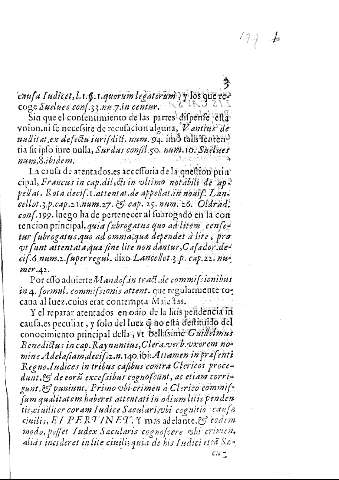 3
causa Iudicet, l. 1. §. 1. quorum legatorum, y los que re-
coge Suelues cons. 33. nu 7. in centur.
Sin que el contentimiento de las partes dispense esta
vnion, ni se necessite de recusacion alguna, Vantius de
nullitat. ex defectu iurisdict. num. 94. imò talis senten-
tia sit ipso iure nulla, Surdus consil. 50. num. 10. Suelues
num. 8. ibidem.
La causa de atentados es accessoria de la question prin
cipal, Francus in cap. dilecti in vltimo notabili de ap-
pellat. Rota decis. 1. attentat. de appellat. in nouis. Lan-
cellot. 3. p. cap. 21. num. 27. & cap. 25. num. 26. Oldrad.
cons. 199. luego ha de pertenecer al subrogado en la con
tencion principal, quia subrogatus quo ad litem cense-
tur subrogatus quo ad omnia, quæ dependet à lite, pro
vt sunt attentata, quæ sine lite non dantur, Casador. de-
cis. 6. num. 2. super regul. dixo Lancellot. 3. p. cap. 22. nu-
mer. 42.
Por esso aduierte Mandos. in tract. de commissionibus
in 4. formul. commissionis attent. que regularmente to-
caua al Iuez, cuius erat contempta Maiestas.
Y el reparar atentados en odio de la litis pendencia in
causa, es peculiar, y solo del Iuez q̃ no està destituido del
conocimiento principal della, vt Bellissimè Guidelmus
Benedictus in cap. Raynuntius, Clera. verb. vxorem no-
mine Adelasiam, decis. 2. n. 140. ibi: Attamen in præsenti
Regno, Iudices in tribus casibus contra Clericos proce-
dunt, & de eorũ excessibus cognoscunt, ac etiam corri-
gunt, & puniunt. Primo vbi crimen à Clerico commis-
sum qualitatem haberet attentati in odium litis penden
tis, ciuiliter coram Iudice Sæculari, vbi cognitio causæ
ciuilis, EI PERTINET. Y mas adelante, & eodem
modo, posset Iudex Sæcularis cognoscere vbi crimen,
alias incideret in lite ciuili; quia de his Iudici est à Sæ-